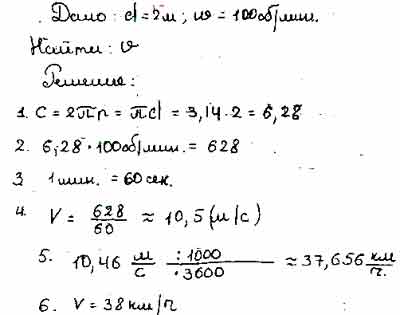 Дано: d=2м; ω=100об/мин.
Найти: υ
Решение:
1. C = 2πr = πd = 3,14·2 = 6,28
2. 6,28·100об/мин. = 628
3 1мин. = 60сек.
4. V = 628/60 ≈ 10,5(м/с)
5. 10,46 м/с :1000/·3600 ≈ 37,656 км/ч.
6. V = 38км/ч